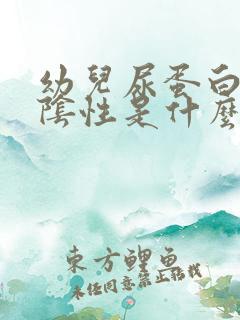 幼兒尿蛋白
陰性是什麼
東方鯉魚
未經同意禁止轉載